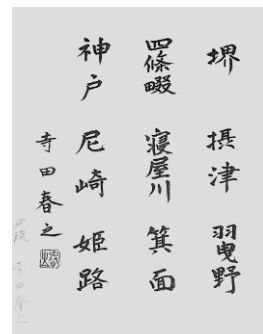 堺 摂津 羽曳野
四條畷 寝屋川 箕面
神戸 尼崎 姫路
寺田春之
四段 寺田春之